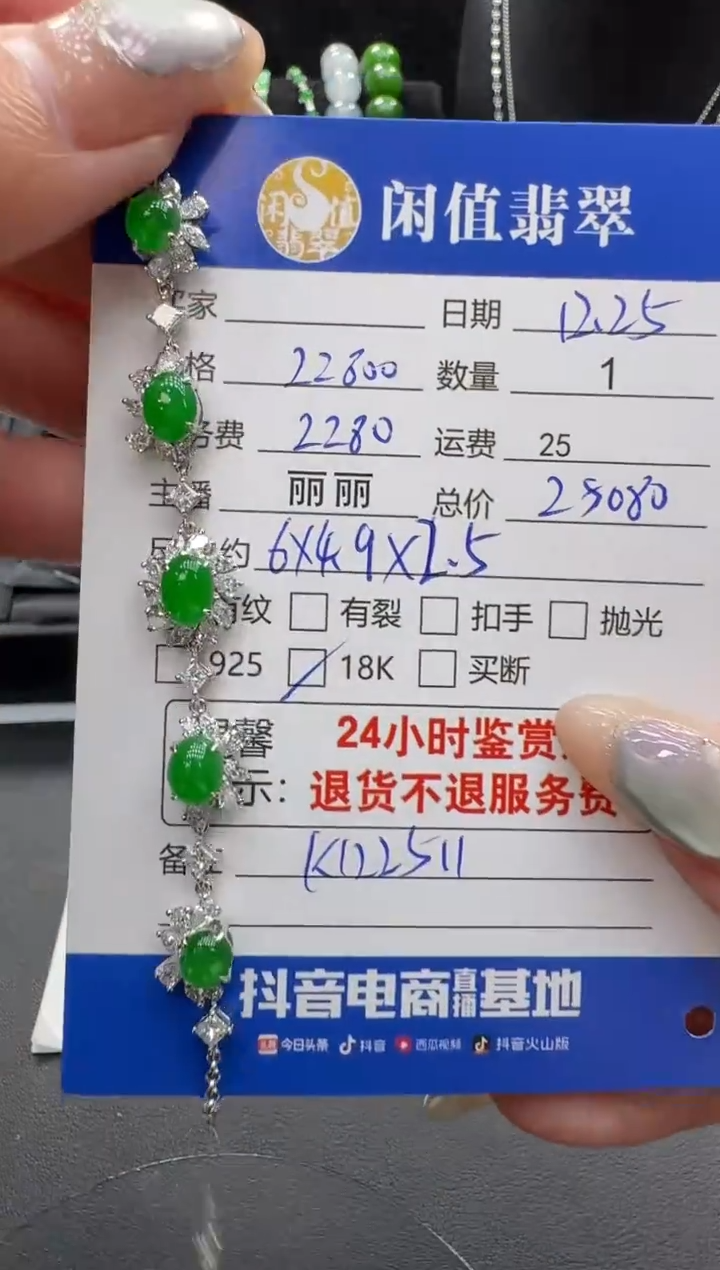 闲值翡翠
闲值
翡翠
家 日期 12.25
格 22800 数量 1
务费 2280 运费 25
主播 丽丽 总价 25080
约 6X4.9X2.5
有纹 有裂 扣手 抛光
925 18K 买断
馨 24小时鉴赏
示: 退货不退服务费
备注 K122511
抖音电商直播基地
今日头条 抖音 西瓜视频 抖音火山版